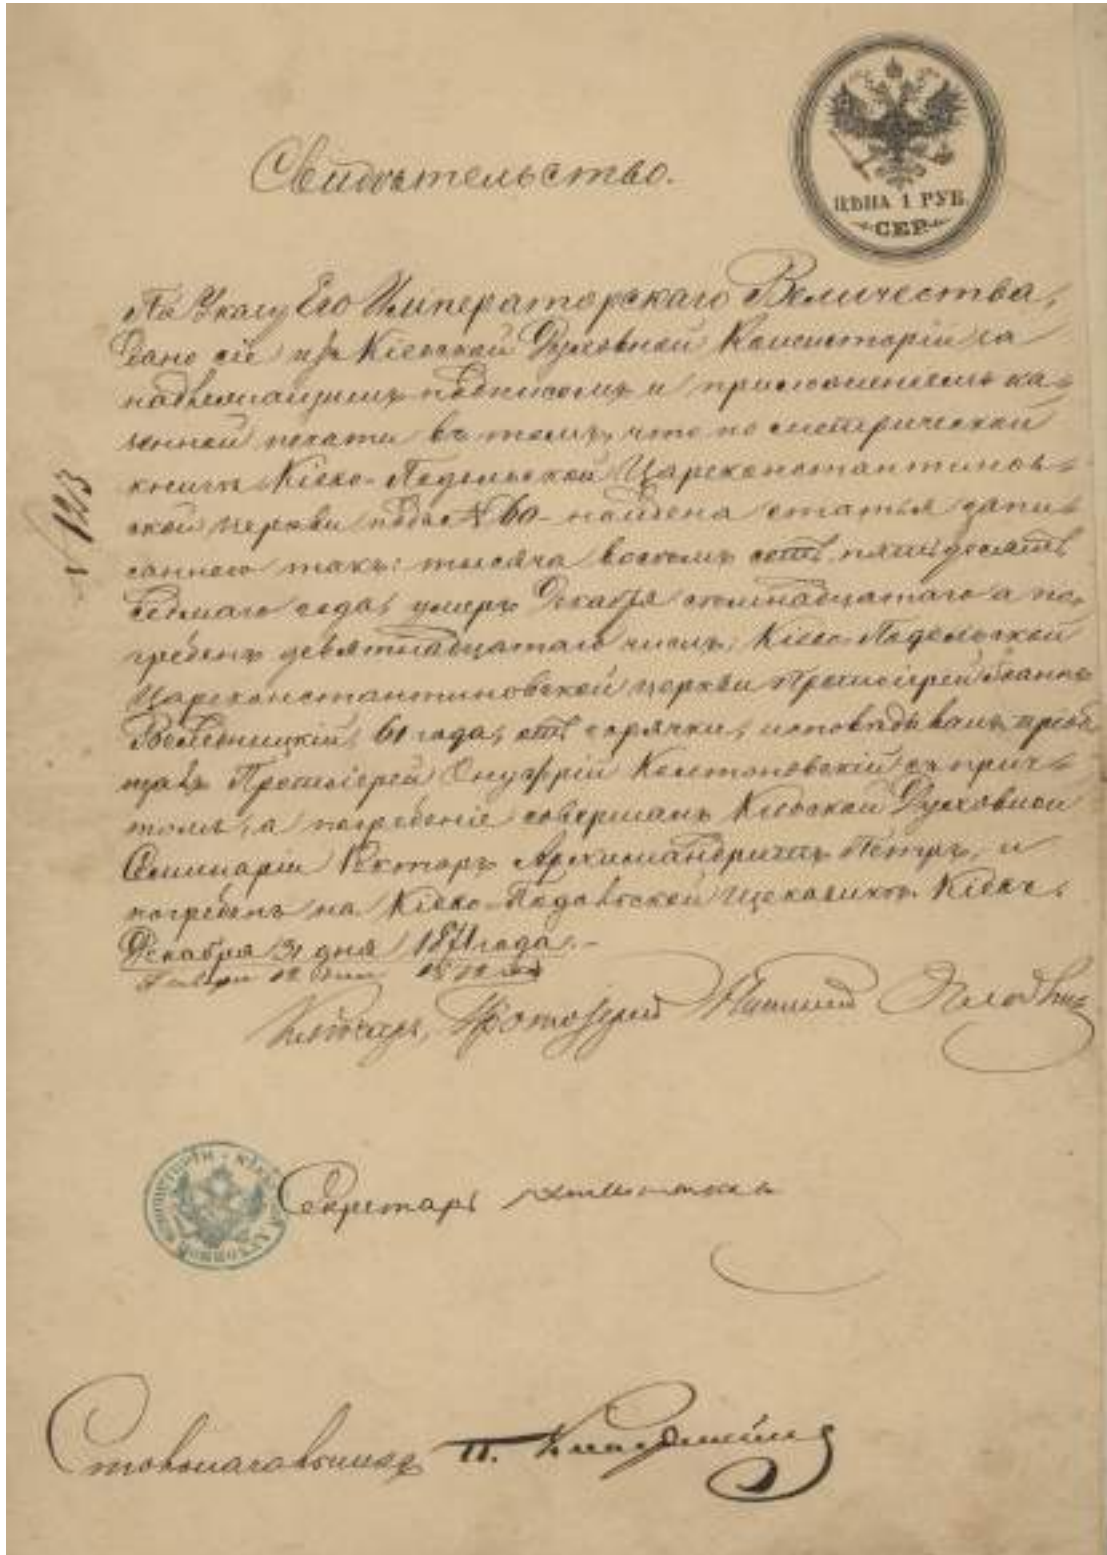 ЦѢНА 1 РУБ.
СЕР.
Свидѣтельство.
По Указу Его Императорскаго Величества,
дано сіе изъ Кіевской Духовной Консисторіи за
надлежащимъ подписомъ и приложеніемъ ка-
зенной печати въ томъ, что по метрической
книгѣ Кіево-Подольской Цареконстантинов-
ской церкви подъ № 60 найдена статья запи-
санною такъ: тысяча восемь сотъ пятьдесятъ
седмаго года, умеръ Декабря а по-
гребенъ девятнадцатаго числъ, Кіево-Подольской
Цареконстантиновской церкви Протоіерей Іоаннъ
61 года, отъ горячки, исповѣдывалъ
Протоіерей Онуфрій съ прич-
томъ, а погребеніе совершалъ Кіевской Духовной
Семинаріи Ректоръ Архимандритъ Петръ, и
погребенъ на Кіево- Щекавикѣ. Кіевъ.
Декабря 31 дня 1871 года.
№ 123
Ключарь, Протоіерей
Секретарь
Столоначальникъ П.